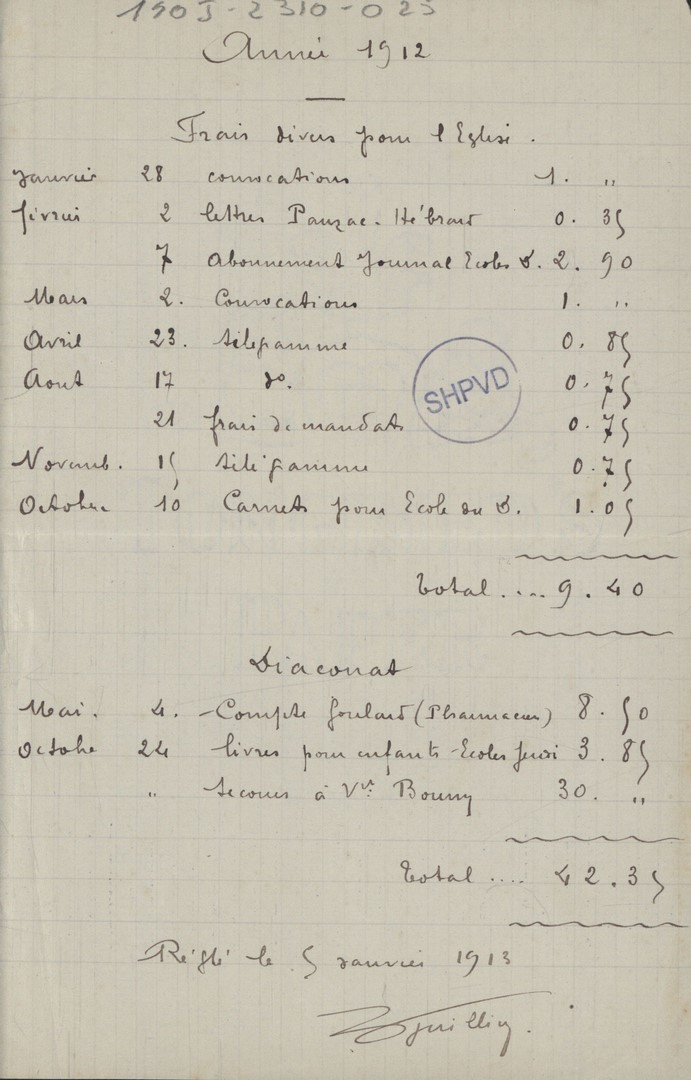 190J-2310-023
Année 1912
Frais divers pour l'Eglise.
Janvier 28 convocations 1. "
février 2 lettres Pauzac-Hébrard 0. 35
7 Abonnement Journal Ecoles d. 2. 90
Mars 2. Convocations 1. "
Avril 23. télégramme 0. 85
Aout 17 do. 0. 75
21 frais de mandats 0. 75
Novemb. 15 télégramme 0. 75
Octobre 10 Carnets pour Ecole du d. 1. 05
Total .... 9. 40
Diaconat
Mai. 4. -Compte Goulard (Pharmacien) 8. 50
Octobre 24 livres pour enfants-Ecoles Jeudi 3. 85
" secours à Vve 30. "
Total .... 42. 35
Réglé le 5 Janvier 1913
SHPVD